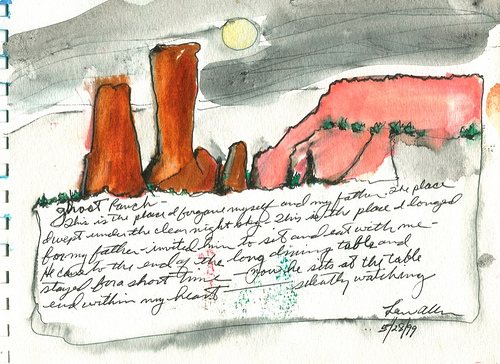 Ghost Ranch -
This is the place I forgave myself and my father. The place
I wept under the clear night sky. This is the place I longed
for my father - invited him to sit and eat with me -
He came to the end of the long dining table and
stayed for a short time Now he sits at the table
end within my heart silently watching
5/28/99